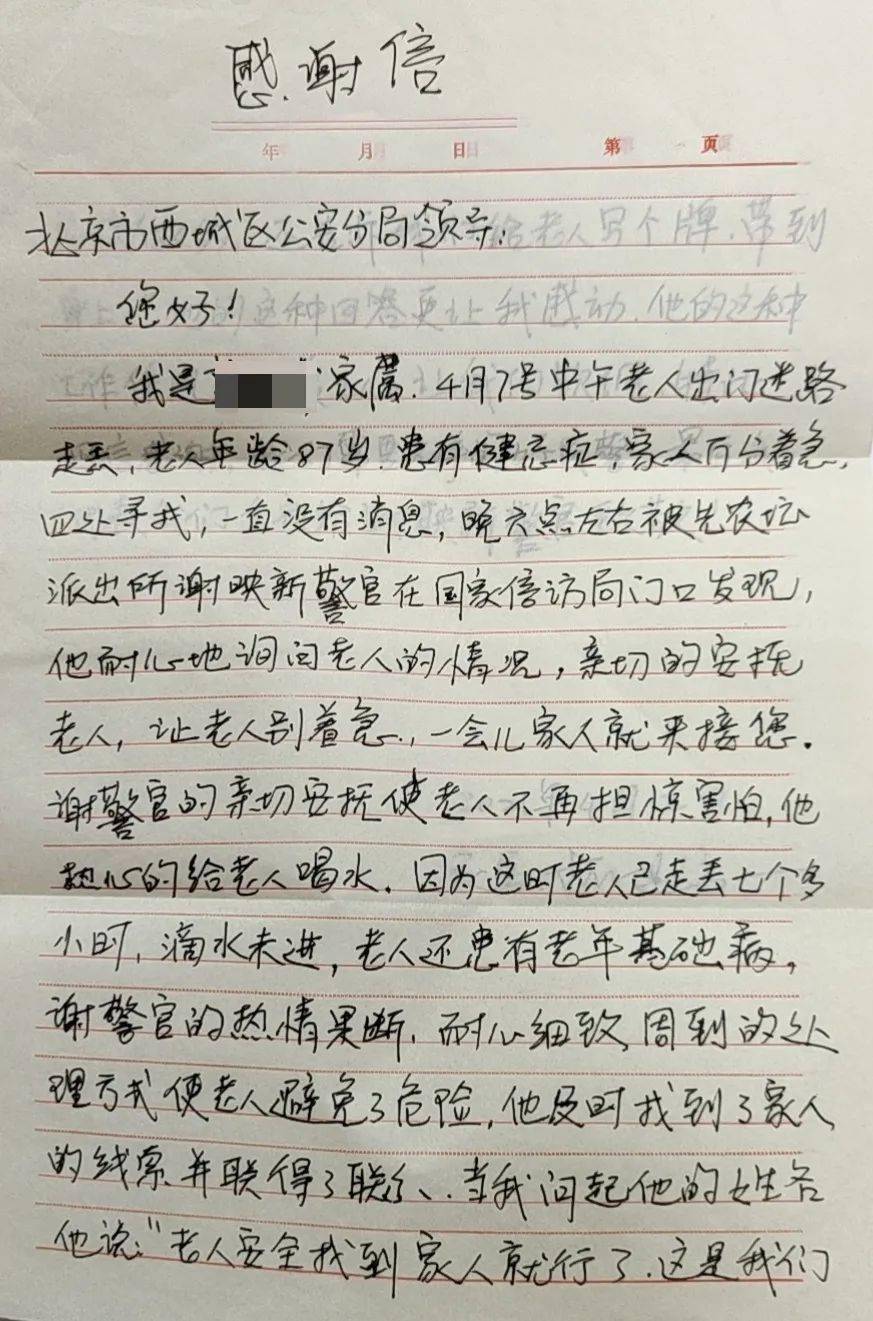 感谢信
年 月 日 第 页
北京市西城区公安分局领导:
您好!
我是 家属.4月7号中午老人出门迷路
走丢,老人年龄87岁.患有健忘症,家人万分着急,
四处寻找,一直没有消息,晚六点左右被先农坛
派出所谢映新警官在国家信访局门口发现,
他耐心地询问老人的情况,亲切的安抚
老人,让老人别着急.,一会儿家人就来接您.
谢警官的亲切安抚使老人不再担惊害怕,他
热心的给老人喝水.因为这时老人已走丢七个多
小时,滴水未进,老人还患有老年基础病,
谢警官的热情果断.耐心细致,周到的处
理方式使老人避免了危险,他及时找到了家人
的线索并联得了联系、.当我问起他的姓名
他说:"老人安全找到家人就行了.这是我们